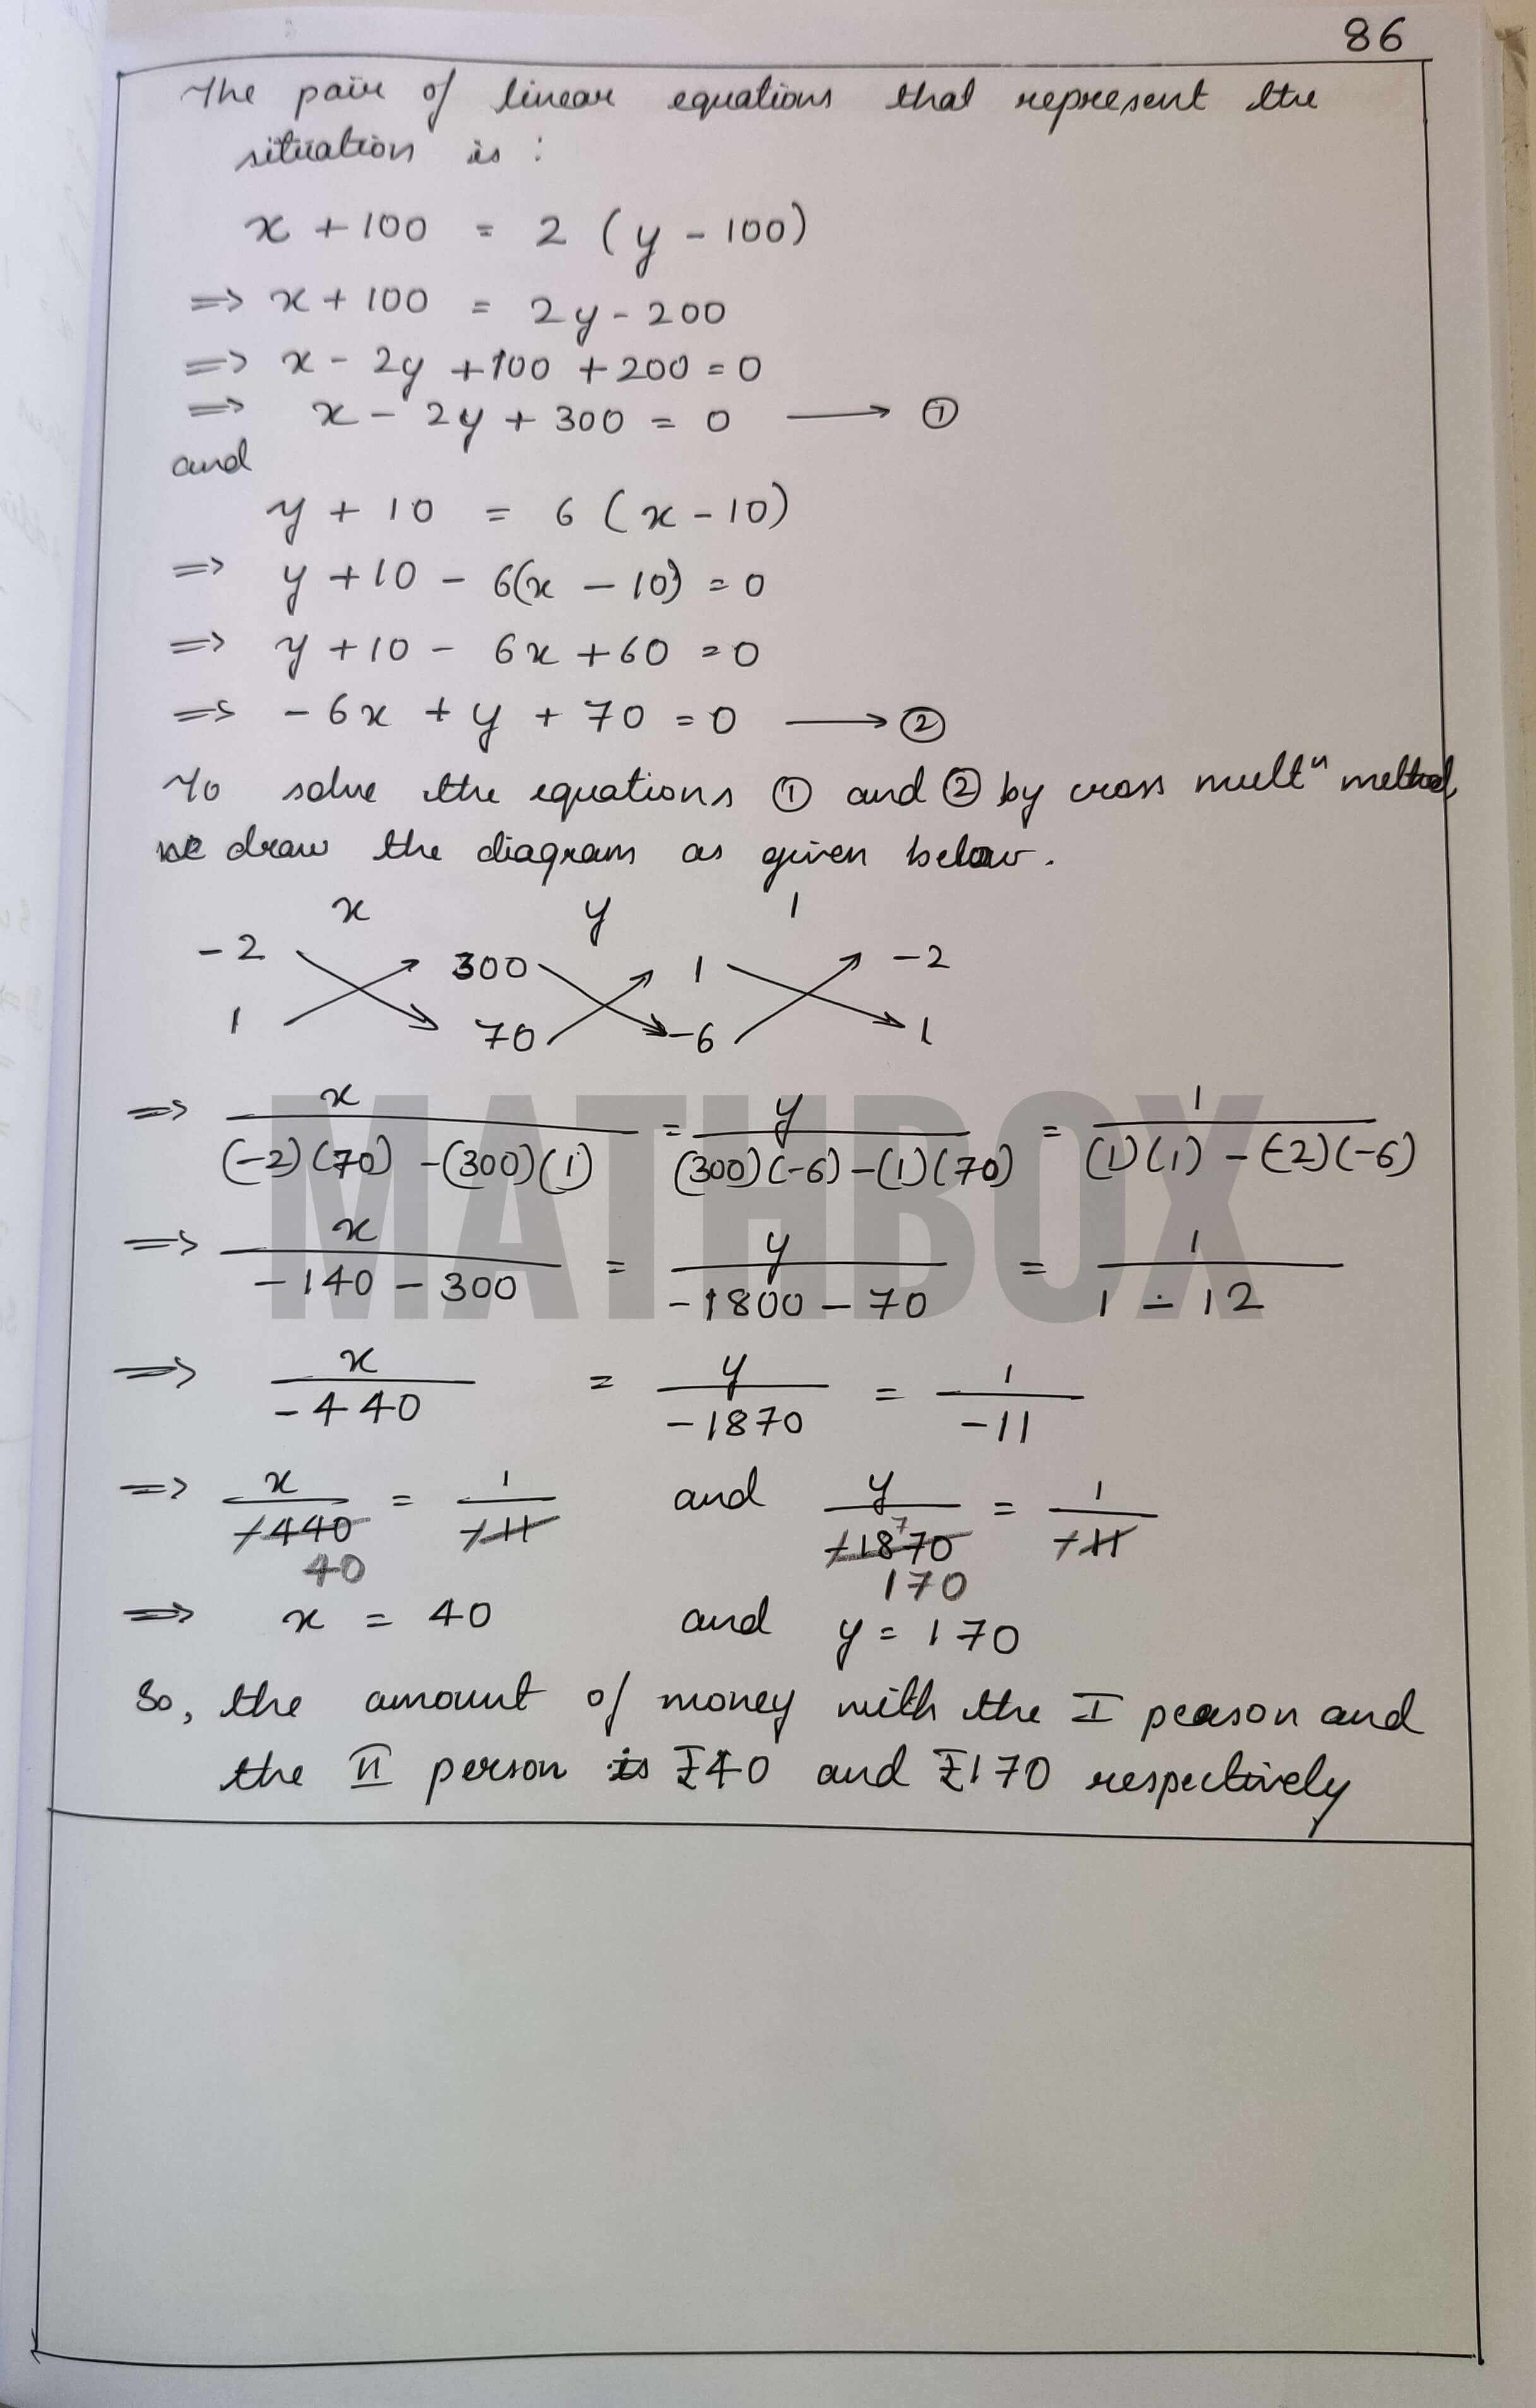 86
The pair of linear equations that represent the
situation is :
x + 100 = 2 (y - 100)
=> x + 100 = 2y - 200
=> x - 2y + 100 + 200 = 0
=> x - 2y + 300 = 0 → ①
and
y + 10 = 6 (x - 10)
=> y + 10 - 6(x - 10) = 0
=> y + 10 - 6x + 60 = 0
=> - 6x + y + 70 = 0 → ②
To solve the equations ① and ② by cross multⁿ method,
we draw the diagram as given below.
x y 1
-2 300 1 -2
1 70 -6 1
=> x/((-2)(70) - (300)(1)) = y/((300)(-6) - (1)(70)) = 1/((1)(1) - (-2)(-6))
MATHBOX
=> x/(-140 - 300) = y/(-1800 - 70) = 1/(1 - 12)
=> x/-440 = y/-1870 = 1/-11
=> x/-440 = 1/-11 and y/-1870 = 1/-11
7
40 170
=> x = 40 and y = 170
So, the amount of money with the I person and
the II person is ₹40 and ₹170 respectively